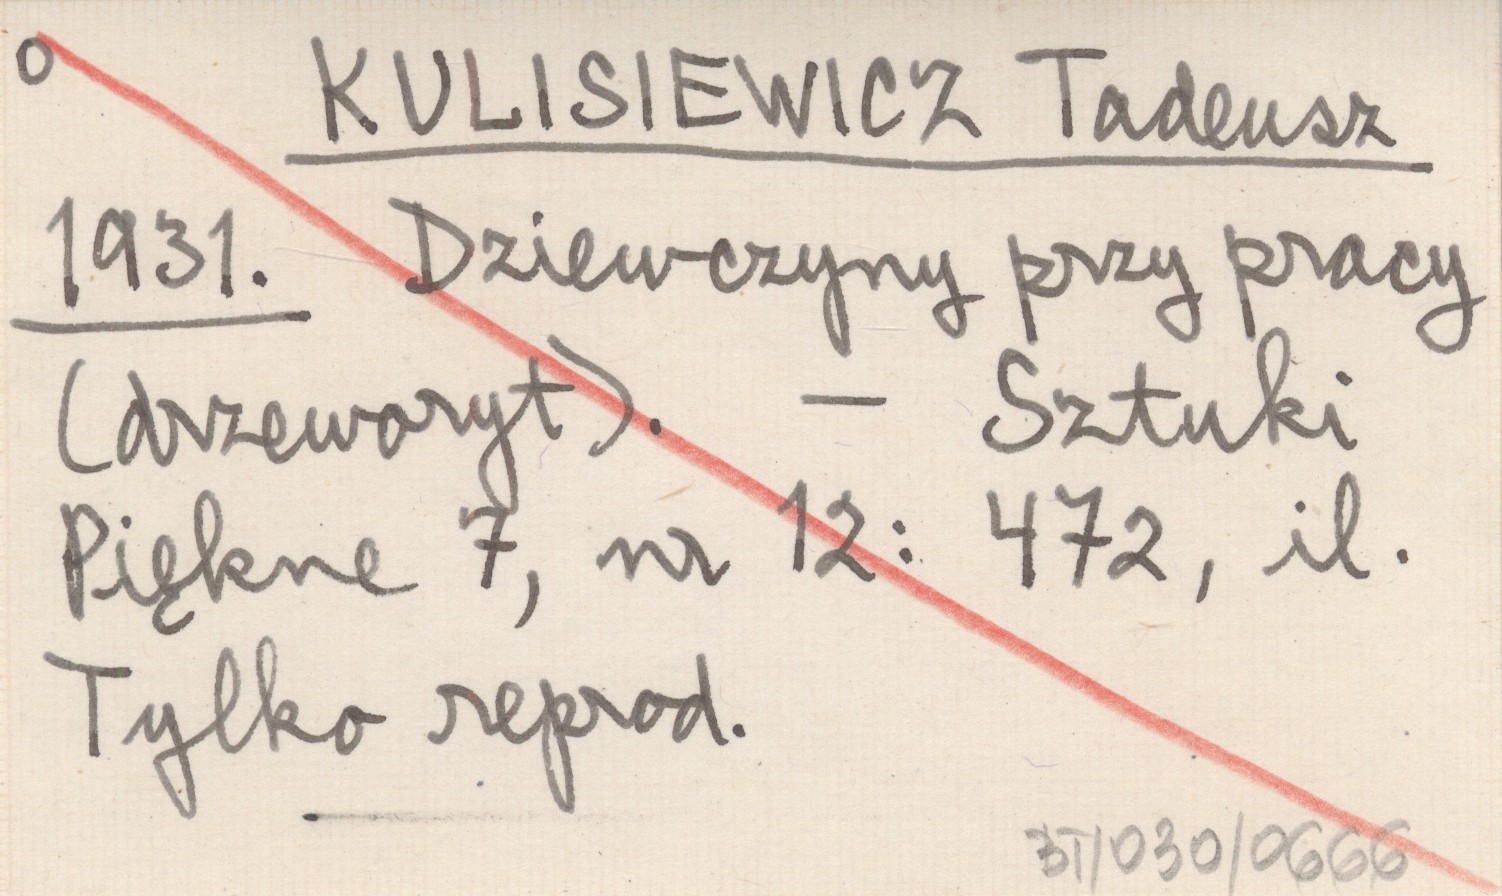 o
KULISIEWICZ Tadeusz
1931. Dziewczyny przy pracy
(drzeworyt). — Sztuki
Piękne 7, nr 12: 472, il.
Tylko reprod.
3T/030/0666